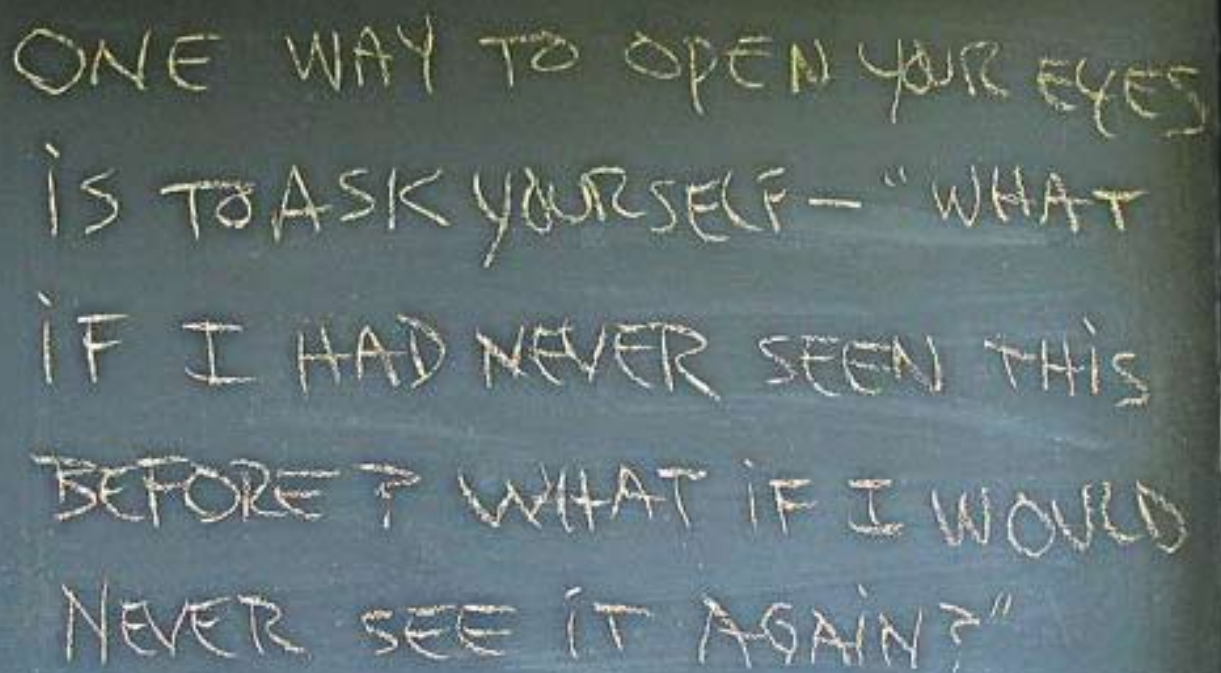 ONE WAY TO OPEN YOUR EYES
iS TO ASK YOURSELF - "WHAT
iF I HAD NEVER SEEN THiS
BEFORE? WHAT iF I WOULD
NEVER SEE iT AGAiN?"